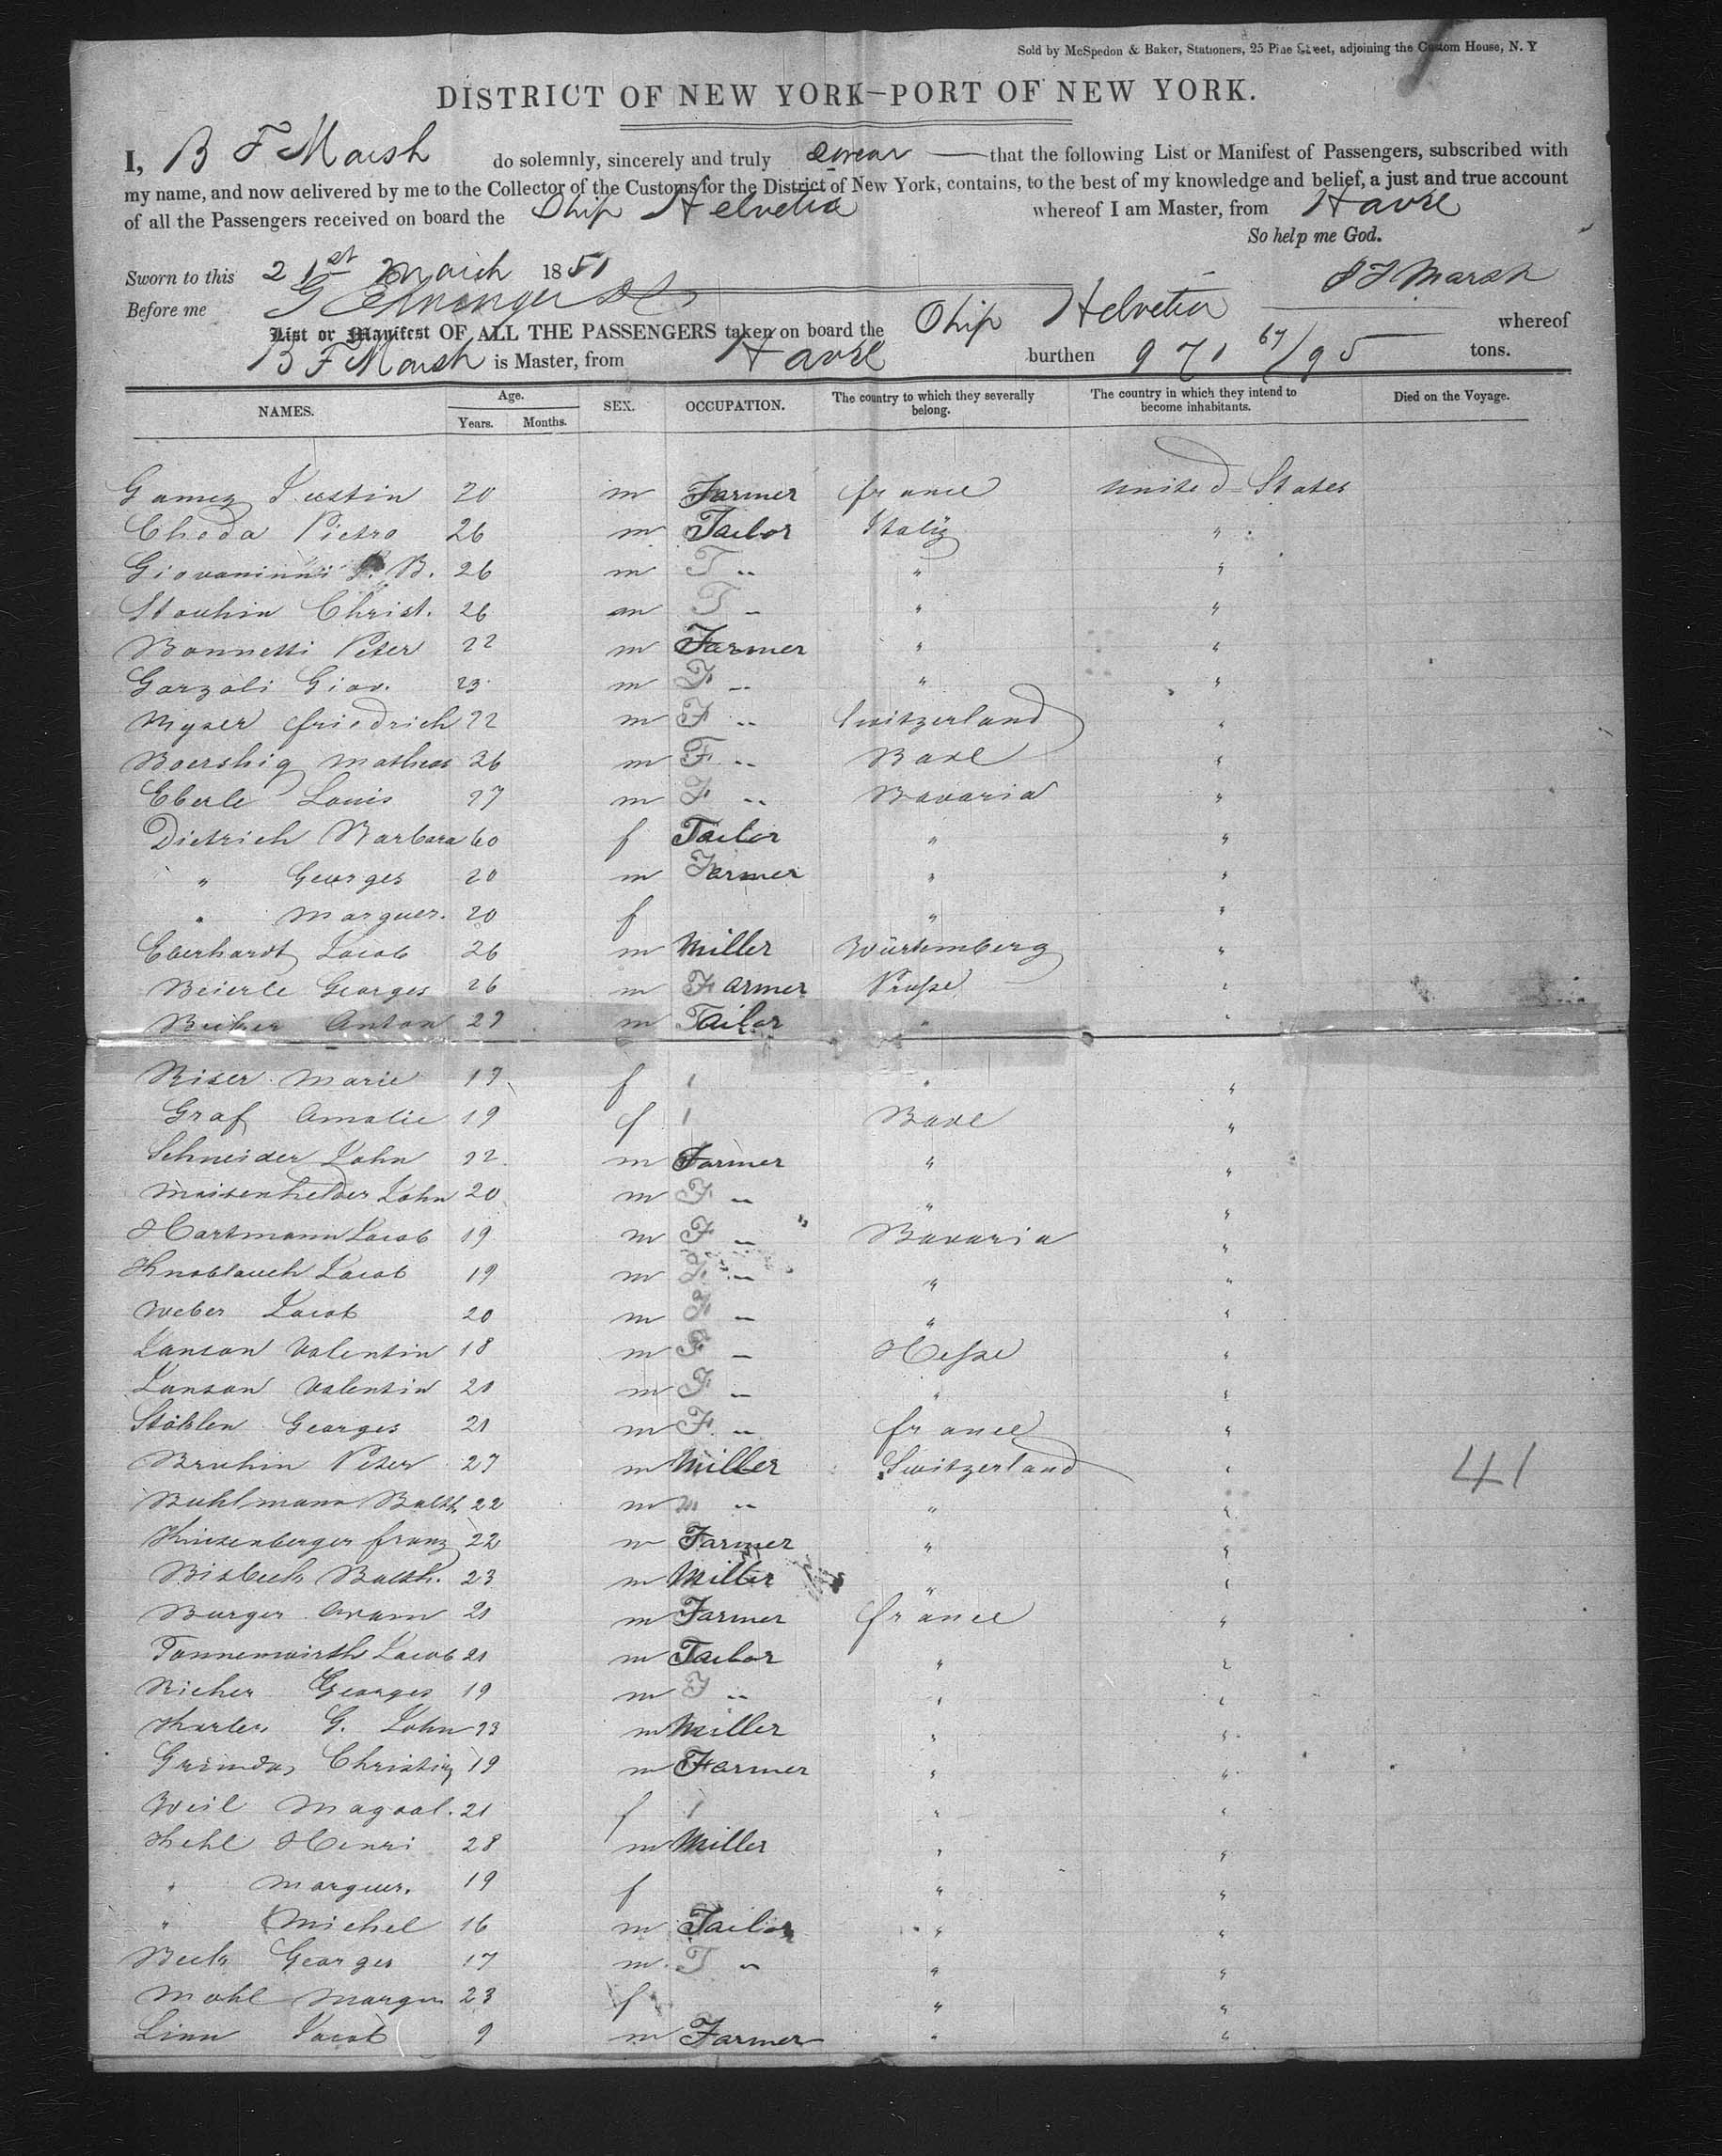 Sold by McSpedon & Baker, Stationers, 25 Pine Street, adjoining the Custom House, N. Y
DISTRICT OF NEW YORK—PORT OF NEW YORK.
I, B F Marsh do solemnly, sincerely and truly swear — that the following List or Manifest of Passengers, subscribed with
my name, and now delivered by me to the Collector of the Customs for the District of New York, contains, to the best of my knowledge and belief, a just and true account
of all the Passengers received on board the Ship Helvetia whereof I am Master, from Havre
So help me God.
Sworn to this 21st March 1851 B F Marsh
Before me
List or Manifest OF ALL THE PASSENGERS taken on board the Ship Helvetia whereof
B F Marsh is Master, from Havre burthen 971 67/95 tons.
NAMES. Age. Years. Months. SEX. OCCUPATION. The country to which they severally belong. The country in which they intend to become inhabitants. Died on the Voyage.
Gamez Justin 20 m Farmer france United States
Cheda Pietro 26 m Tailor Italy "
Giovaninni B. 26 m T " " "
Stouhin Christ. 26 m T " " "
Bonnetti Peter 22 m Farmer " "
Garzoli Giov. 23 m F " " "
Myser friedrich 22 m F " Switzerland "
Boershig Matheas 36 m F " Bade "
Eberle Louis 27 m F " Bavaria "
Dietrich Barbara 60 f Tailor " "
" Georges 20 m Farmer " "
" Marguer. 20 f " "
Eberhardt Jacob 26 m Miller Würtemberg "
Beierle Georges 26 m Farmer Prusse "
Anton 27 m Tailor " "
Riser Marie 17 f 1 " "
Graf Amalie 19 f 1 Bade "
Schneider John 22 m Farmer " "
Meisenhelder John 20 m F " " "
Hartmann Jacob 19 m F " Bavaria "
Knoblauch Jacob 19 m F " " "
Weber Jacob 20 m F " " "
Janson Valentin 18 m F " Hesse "
Janson Valentin 20 m F " " "
Stöhlen Georges 21 m F " france "
Bruhin Peter 27 m Miller Switzerland " 41
Buhlmann Balth. 22 m " " "
Kniesenberger franz 22 m Farmer " "
Bisbech Balth. 23 m Miller " "
Burger Avam 21 m Farmer france "
Tannenwirth Jacob 21 m Tailor " "
Richer Georges 19 m T " " "
G. John 23 m Miller " "
Christin 19 m Farmer " "
Weil Magdal. 21 f 1 " "
Kehl Henri 28 m Miller " "
" Marguer. 19 f " "
" Michel 16 m Tailor " "
Beck Georges 17 m T " " "
Mohl Marguer 23 f " "
Linn Jacob 9 m Farmer " "